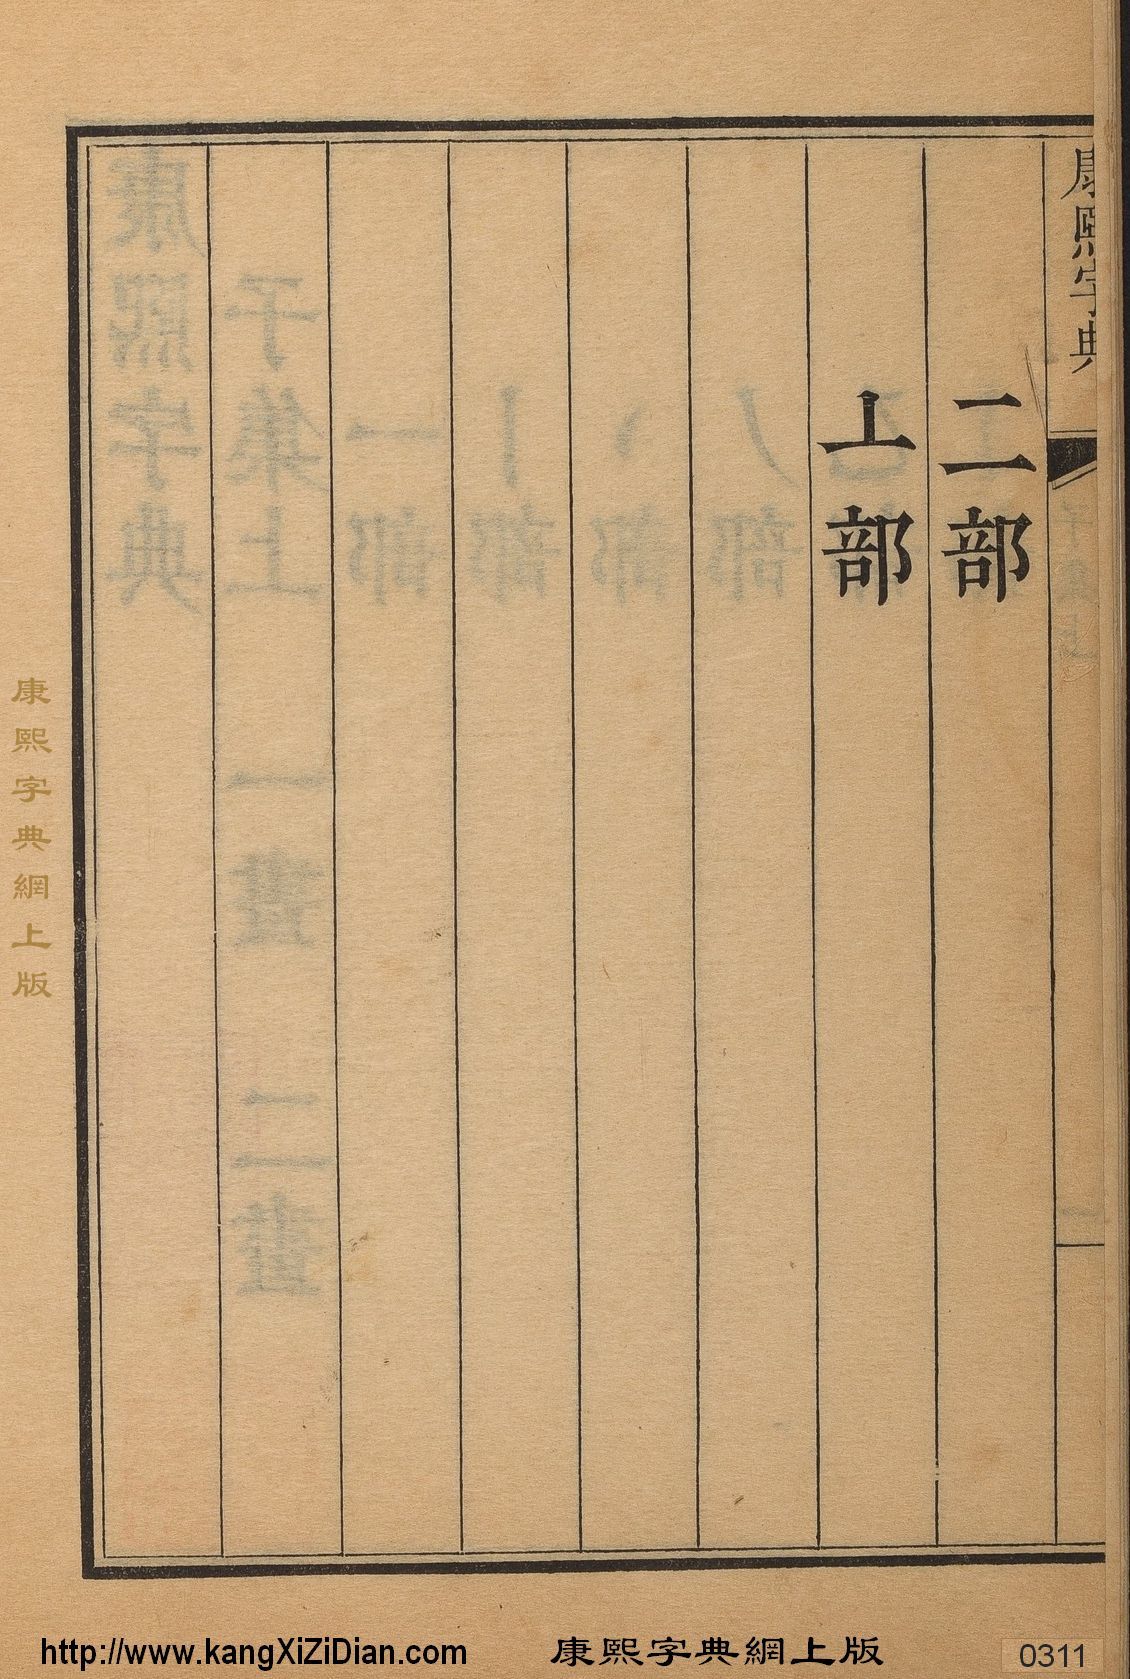 康熙字典
二部
亠部
康熙字典網上版
http://www.kangXiZiDian.com 康熙字典網上版 0311